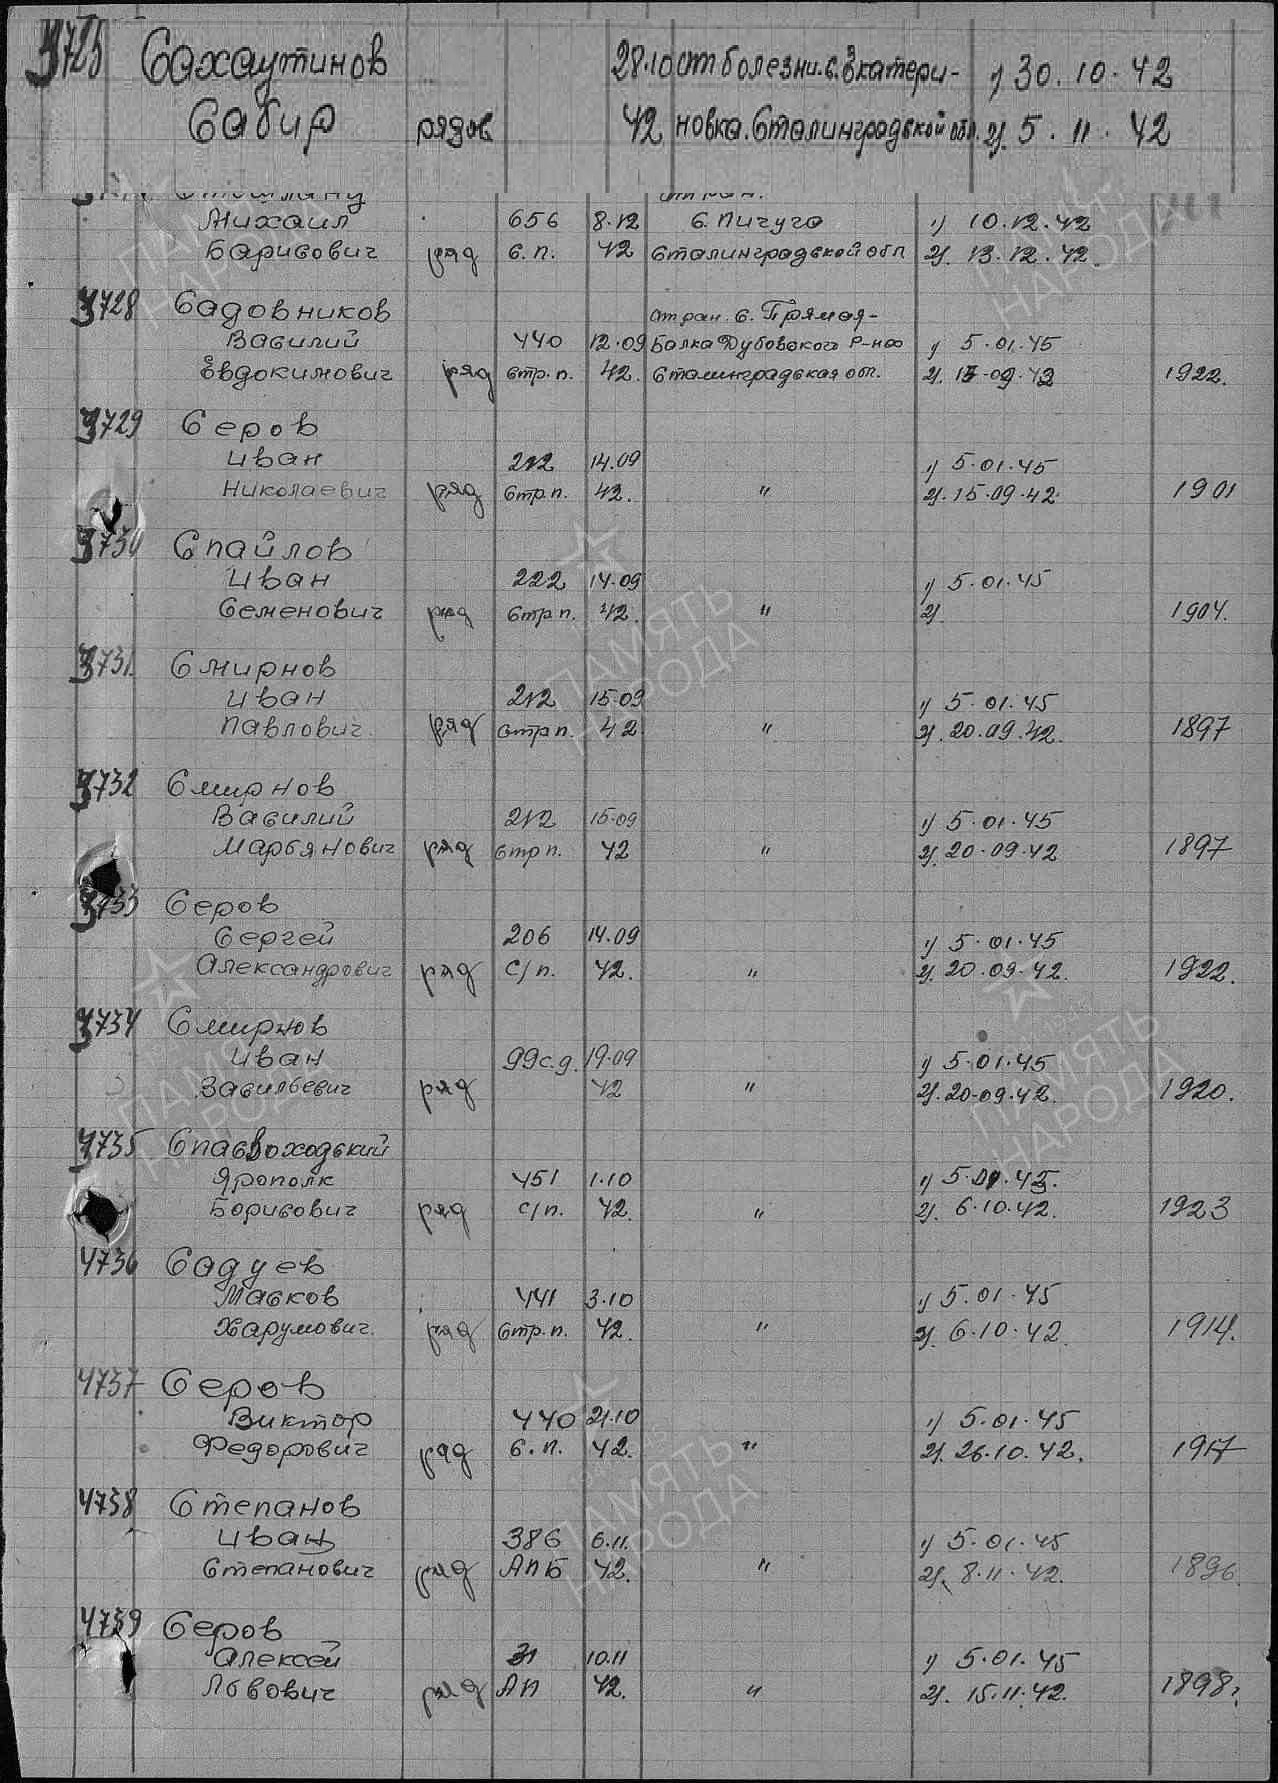 3725 Сахаутинов 28.10 от болезни. с. Екатери- 1) 30.10.42
Сабир рядов 42 новка. Сталинградской обл. 2). 5.11.42
Михаил 656 8.12 с. Пичуга 1) 10.12.42
Барисович ряд с.п. 42 Сталинградской обл 2). 13.12.42.
3728 Садовников от ран. с. Прямая-
Василий 440 12.09 Балка Дубовского р-на 1) 5.01.45
Евдокимович ряд стр.п. 42. Сталинградская обл. 2). 15.09.42 1922.
3729 Серов
Иван 212 14.09 1) 5.01.45
Николаевич ряд стр.п. 42. " 2). 15.09.42 1901
3730 Спайлов
Иван 222 14.09 1) 5.01.45
Семенович ряд стр.п. 42. " 2). 1904.
3731. Смирнов
Иван 212 15.09 1) 5.01.45
Павлович ряд стр п. 42 " 2). 20.09.42. 1897
3732 Смирнов
Василий 212 15.09 1) 5.01.45
Марьянович ряд стр п. 42 " 2). 20.09.42 1897
3733 Серов
Сергей 206 14.09 1) 5.01.45
Александрович ряд с/п. 42. " 2). 20.09.42. 1922.
3734 Смирнов
Иван 99с.д. 19.09 1) 5.01.45
Васильевич ряд 42 " 2). 20.09.42. 1920.
4735 Спасвоходский
Ярополк 451 1.10 1) 5.01.45.
Борисович ряд с/п. 42. " 2). 6.10.42. 1923
4736 Садуев
Масков 441 3.10 1) 5.01.45
Харумович. ряд стр.п. 42. " 2). 6.10.42. 1914.
4737 Серов
Виктор 440 21.10 1) 5.01.45
Федорович ряд с.п. 42. " 2). 26.10.42. 1917
4738 Степанов
Иван 386 6.11. 1) 5.01.45
Степанович ряд АПБ 42. " 2). 8.11.42. 1896.
4739 Серов
Алексей 31 10.11 1) 5.01.45
Львович ряд АП 42. " 2). 15.11.42. 1898.
ПАМЯТЬ
НАРОДА